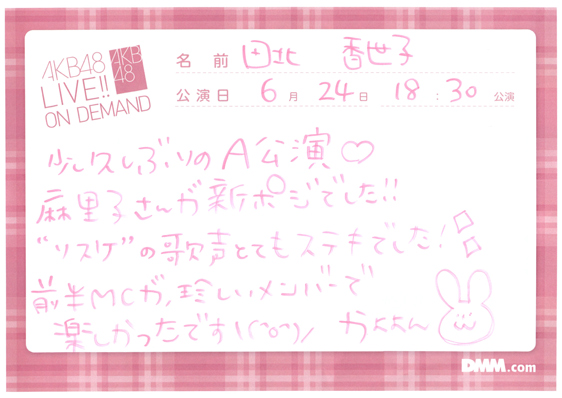 AKB48
LIVE!!
ON DEMAND
AKB
48
名前 田北 香世子
公演日 6月24日 18:30公演
少し久しぶりのA公演♡
麻里子さんが新ポジでした!!
"リスケ"の歌声とてもステキでした!
前半MCが、珍しいメンバーで
楽しかったです\(^o^)/
DMM.com